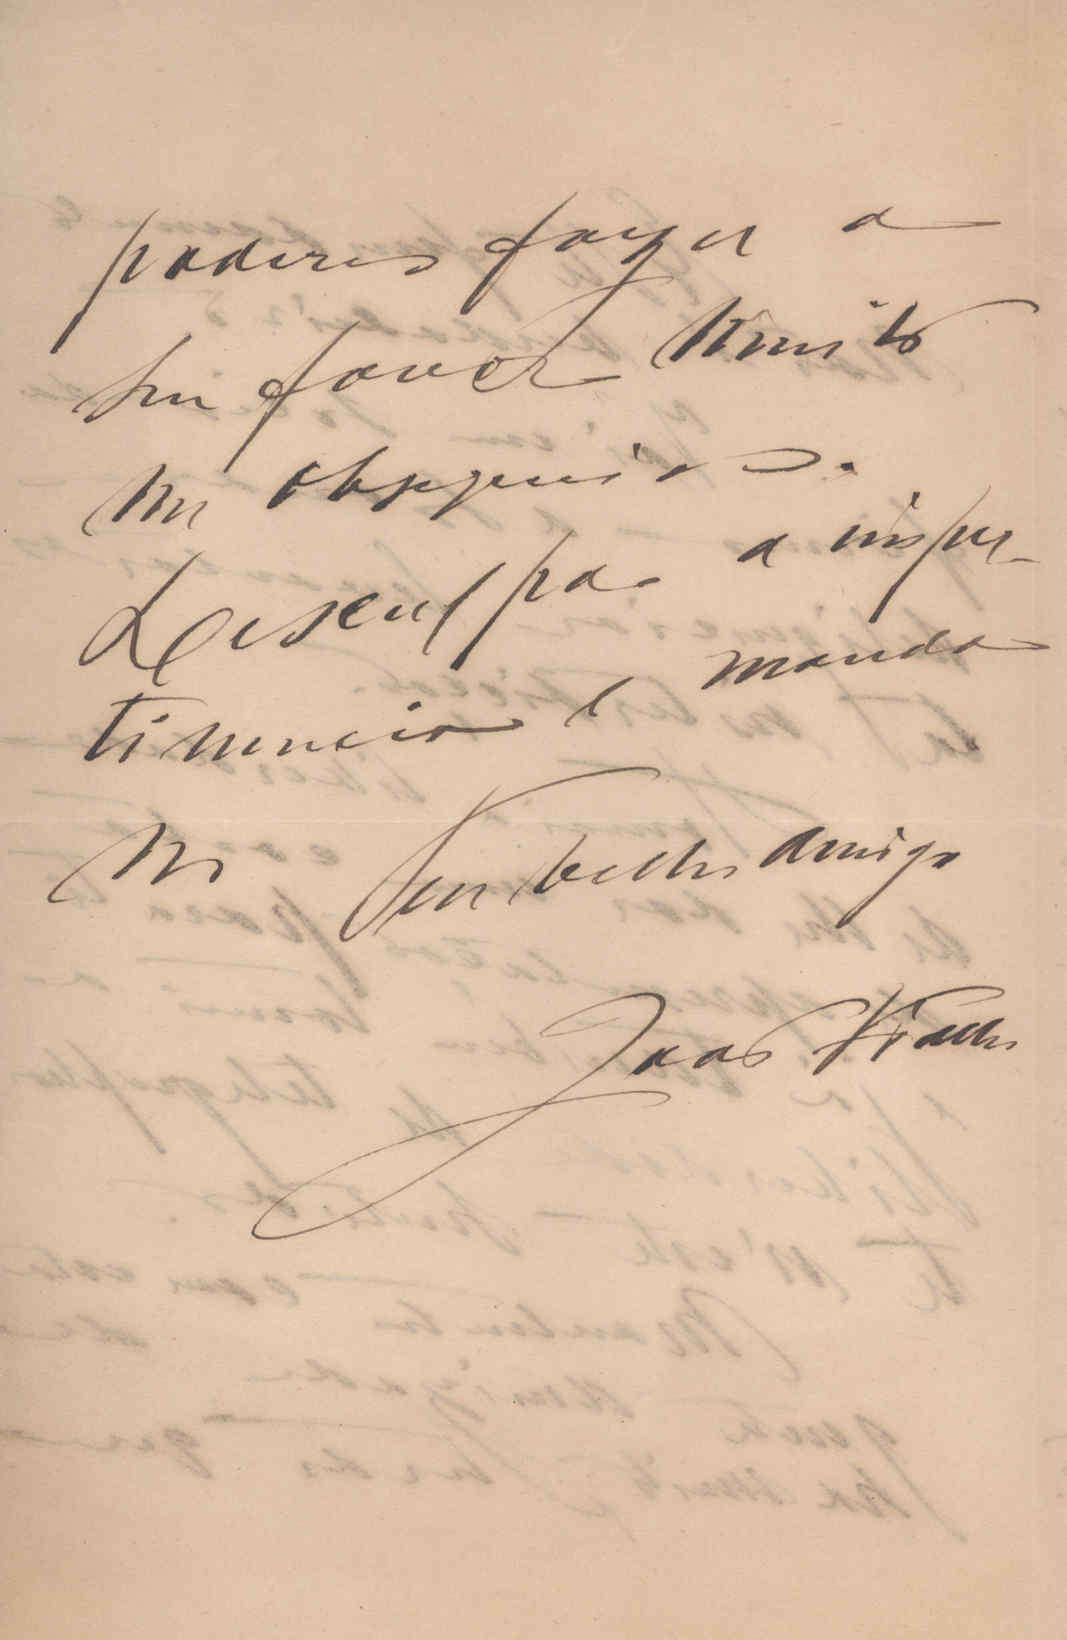 poderes fazer a
seu favor muito
me obsequias.
Desculpa a imper-
tinencia e manda
no
Seu velho amigo
Joao